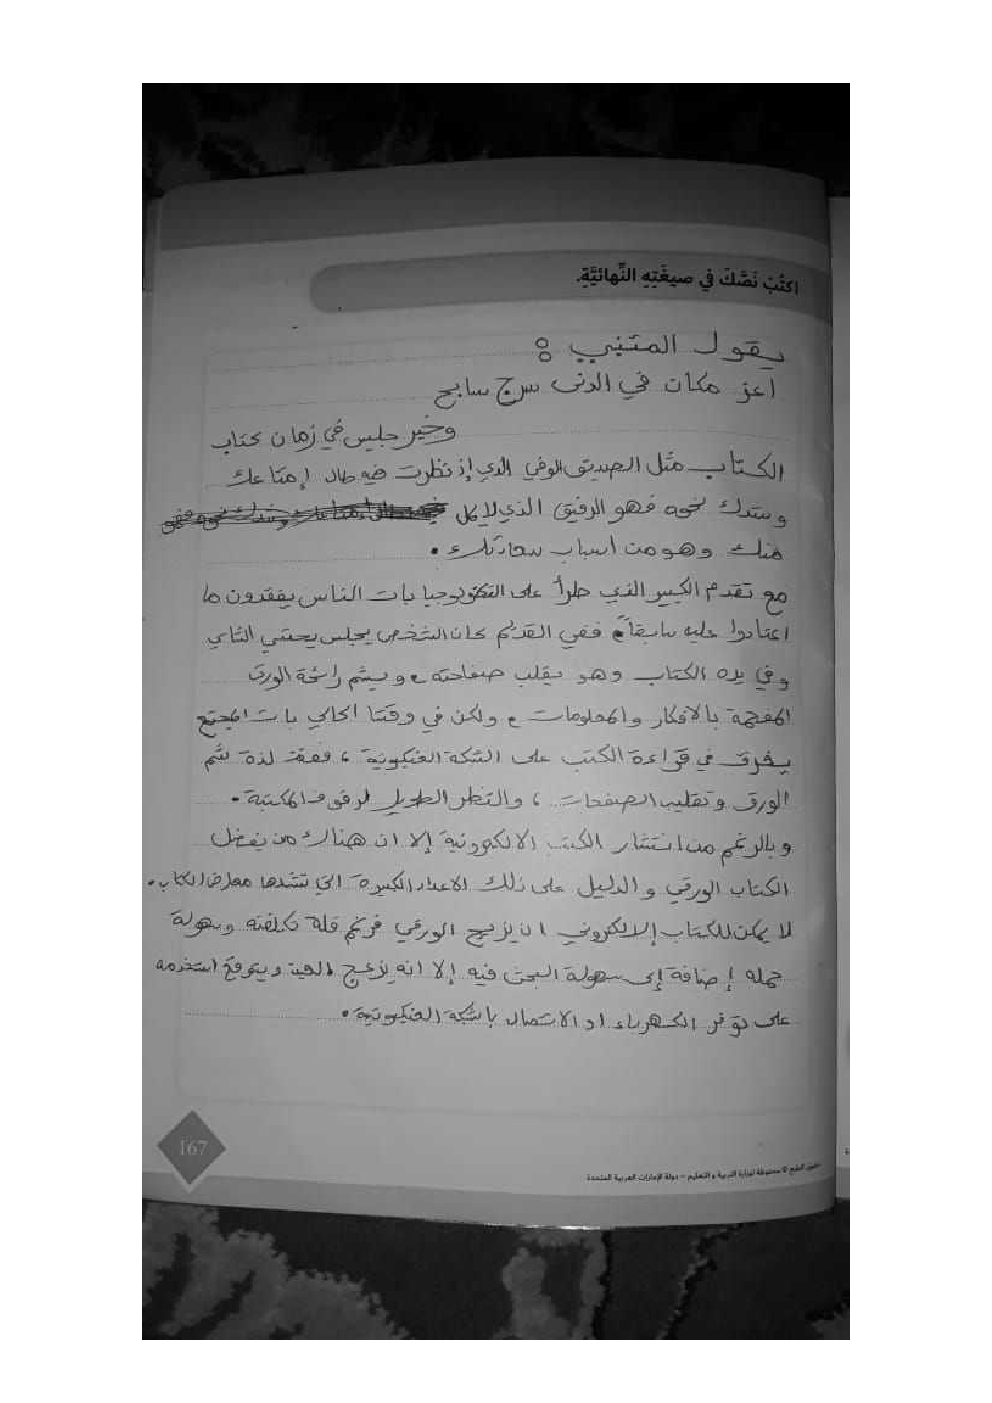 اكتُبْ نَصَّكَ في صيغَتِهِ النِّهائيَّةِ.
يقول المتنبي :
اعز مكان في الدنى سرج سابح
وخير جليس في زمان كتاب
الكتاب مثل الصديق الوفي الذي إذ نظرت فيه طال إمتاعك
وشدك نحوه فهو الرفيق الذي لا يمل
منك وهو من أسباب سعادتك .
مع تقدم الكبير الذي طرأ على التكنولوجيا بات الناس يفقدون ما
اعتادوا عليه سابقاً ، ففي القديم كان الشخص يجلس يحتسي الشاي
وفي يده الكتاب وهو يقلب صفحاته ، ويشم رائحة الورق
المفعمة بالافكار والمعلومات ، ولكن في وقتنا الحالي بات المجتمع
يغرق في قراءة الكتب على الشبكة العنكبوتية ، ففقد لذة شم
الورق وتقليب الصفحات ، والنظر الطويل لرفوف المكتبة .
وبالرغم من انتشار الكتب الالكترونية إلا ان هناك من يفضل
الكتاب الورقي والدليل على ذلك الاعداد الكبيرة التي تشهدها معارض الكتاب .
لا يمكن للكتاب الإلكتروني ان يزيح الورقي فرغم قلة تكلفته وسهولة
حمله إضافة إلى سهولة البحث فيه إلا انه يزعج العين ويتوقف استخدمه
على توفر الكهرباء او الاتصال بالشبكة العنكبوتية .
167
حقوق الطبع © محفوظة لوزارة التربية والتعليم - دولة الإمارات العربية المتحدة